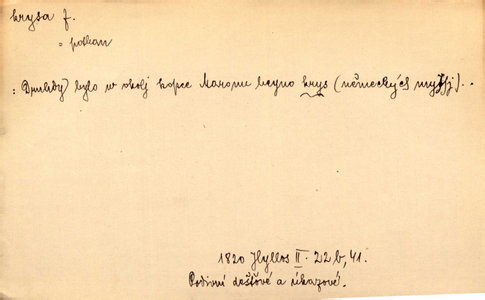 krysa f.
= potkan
: Druhdy) bylo w okolj kopce Maronu leyno krys (německých myssj). .
1820 Hyllos II. 22 b, 41.
Podivní dešťové a úkazové.